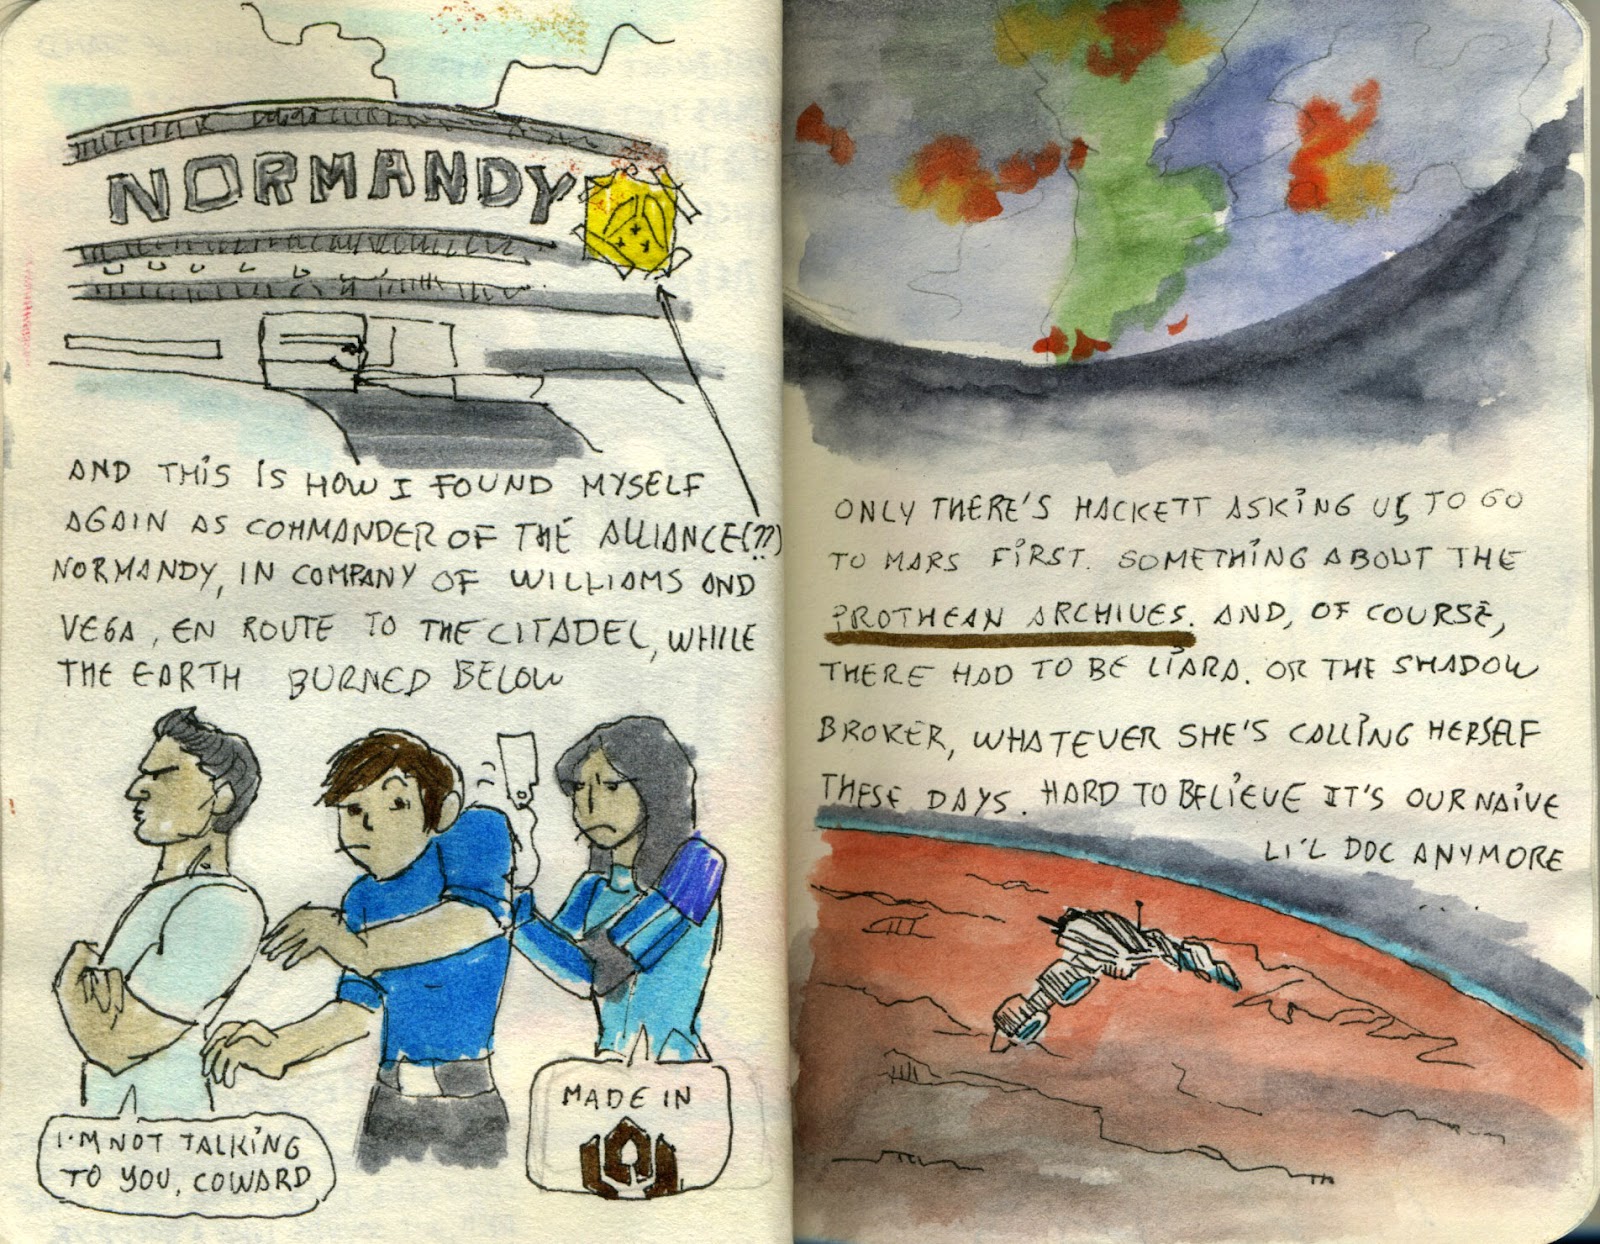 NORMANDY
AND THIS IS HOW I FOUND MYSELF
AGAIN AS COMMANDER OF THE ALLIANCE(??)
NORMANDY, IN COMPANY OF WILLIAMS AND
VEGA, EN ROUTE TO THE CITADEL, WHILE
THE EARTH BURNED BELOW
I'M NOT TALKING
TO YOU, COWARD
MADE IN
ONLY THERE'S HACKETT ASKING US TO GO
TO MARS FIRST. SOMETHING ABOUT THE
PROTHEAN ARCHIVES. AND, OF COURSE,
THERE HAD TO BE LIARA. OR THE SHADOW
BROKER, WHATEVER SHE'S CALLING HERSELF
THESE DAYS. HARD TO BELIEVE IT'S OUR NAIVE
LI'L DOC ANYMORE
...